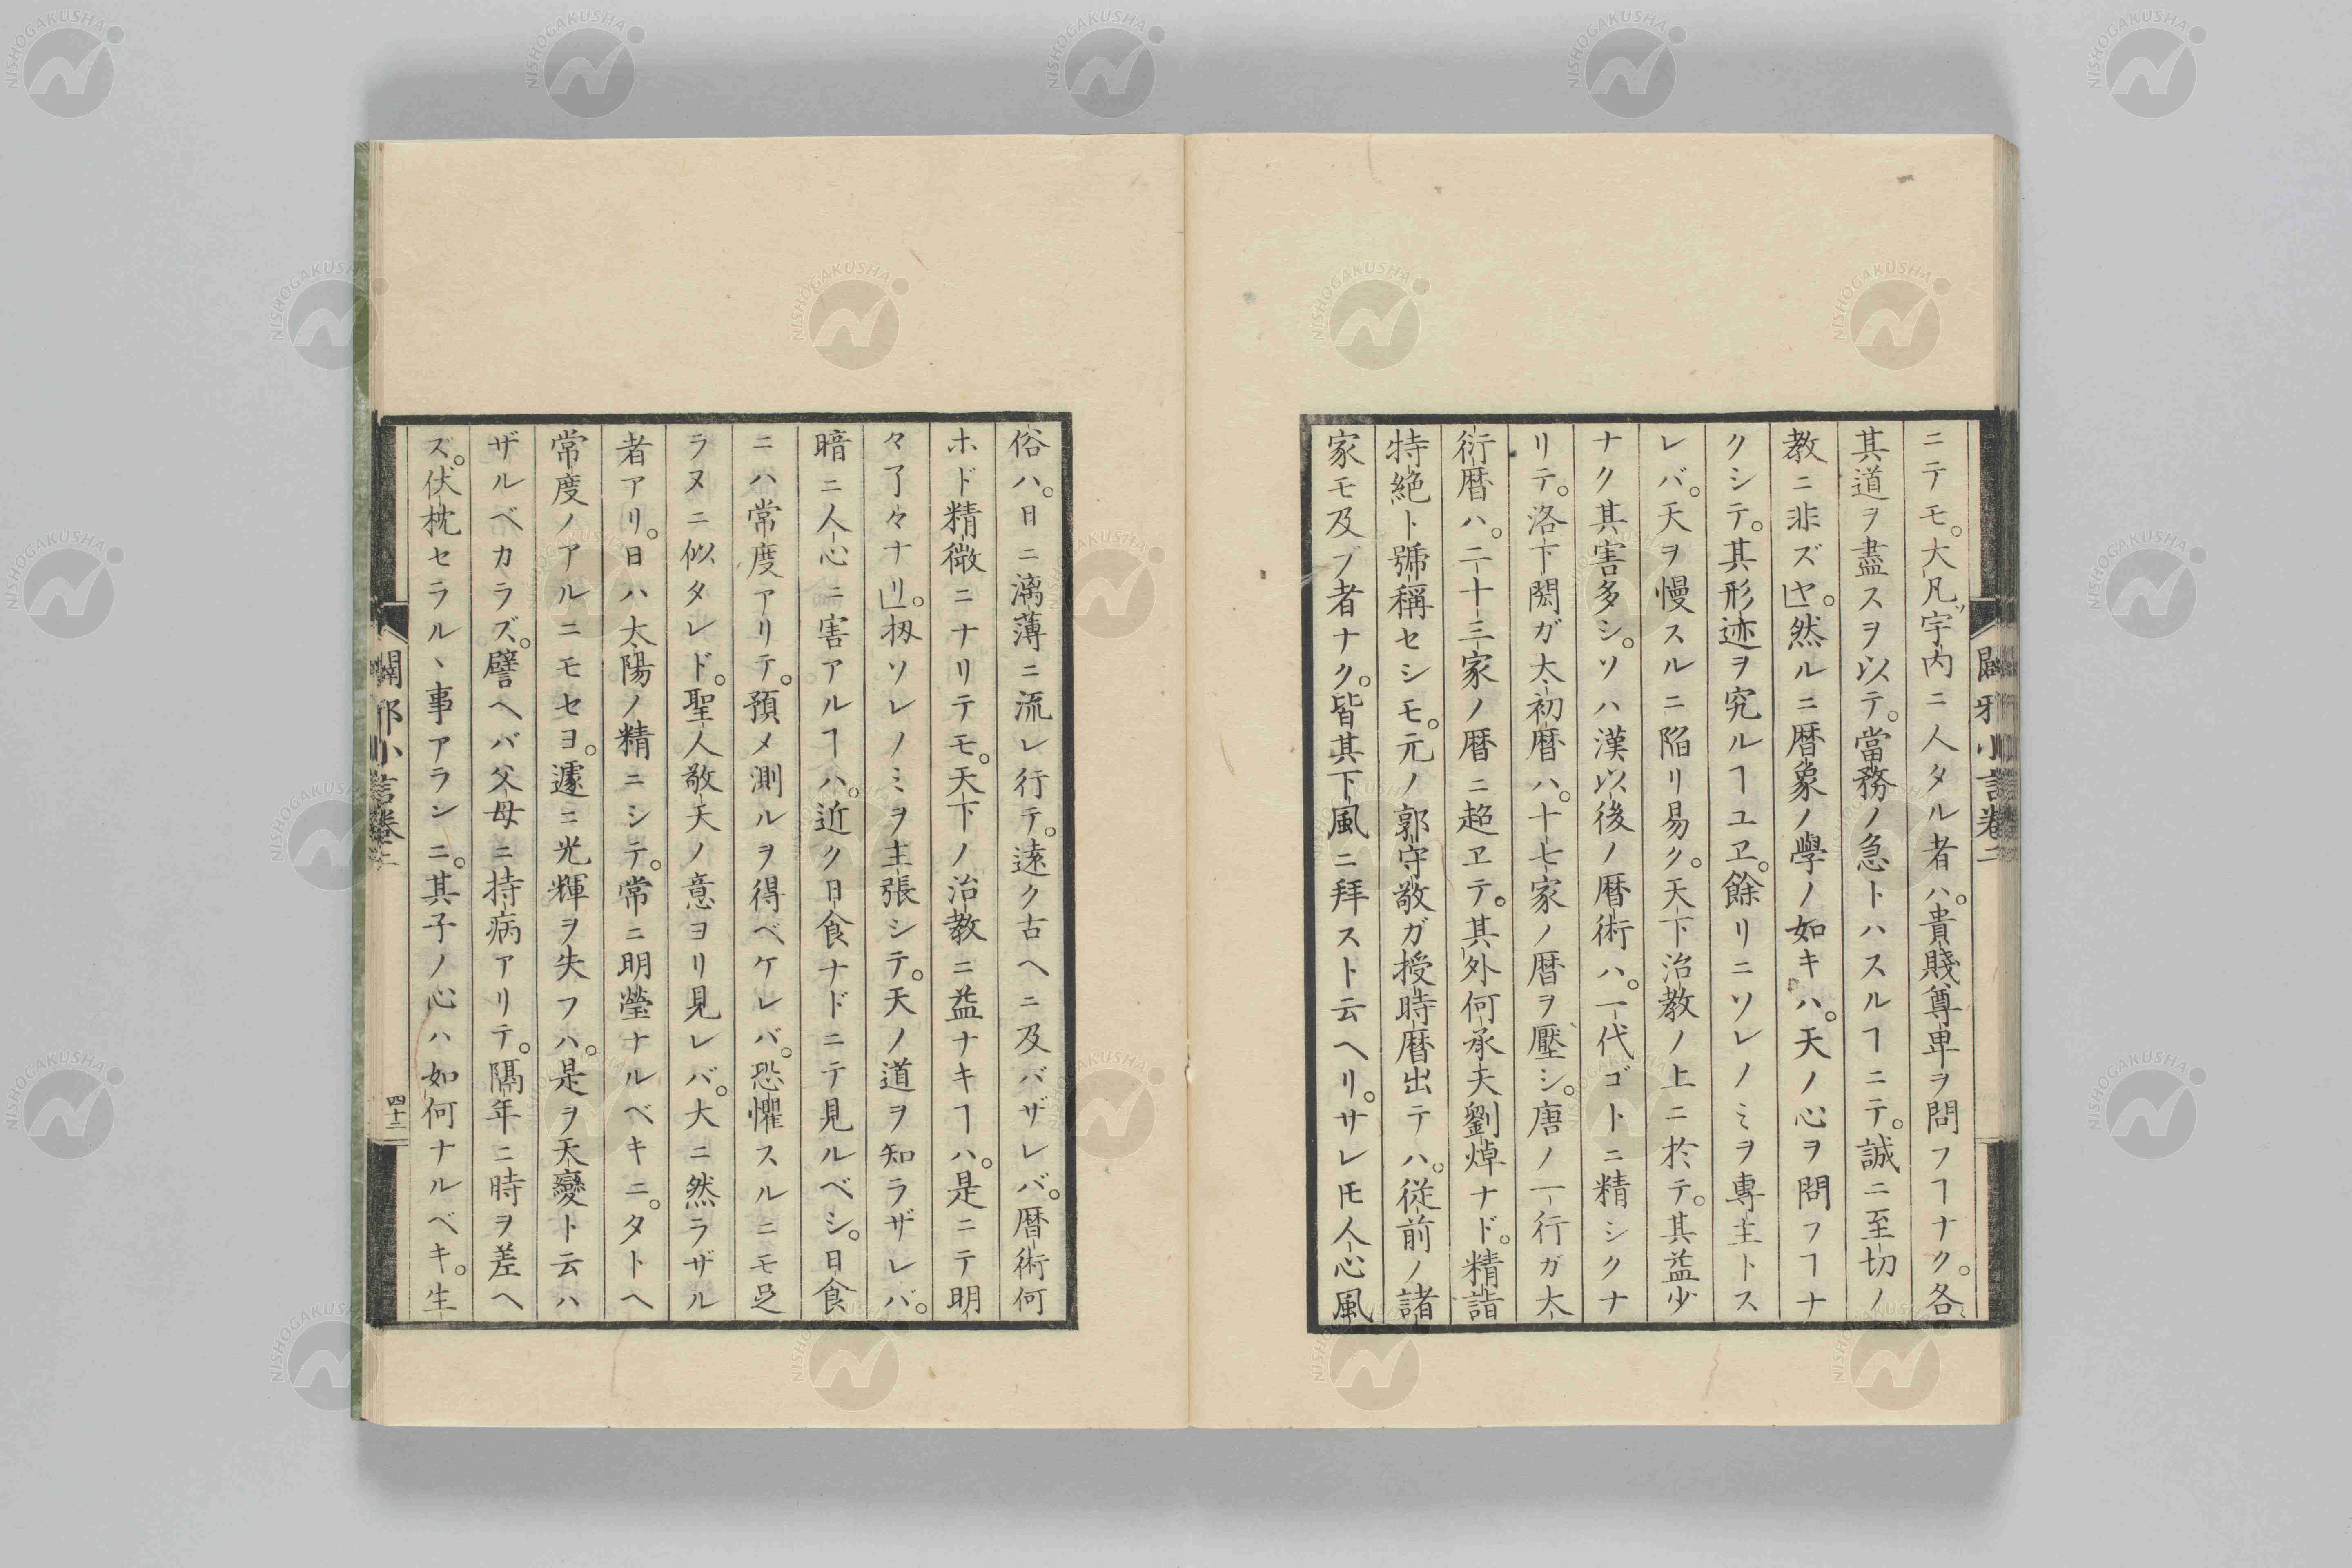 闢邪小言卷二
ニテモ。大凡宇内ニ人タル者ハ。貴賤尊卑ヲ問フヿナク。各〻
其道ヲ盡スヲ以テ。當務ノ急トハスルヿニテ。誠ニ至切ノ
教ニ非ズヤ。然ルニ暦象ノ學ノ如キハ。天ノ心ヲ問フヿナ
クシテ。其形迹ヲ究ルヿユヱ。餘リニソレノミヲ專主トス
レバ。天ヲ慢スルニ陥リ易ク。天下治教ノ上ニ於テ。其益少
ナク其害多シ。ソハ漢以後ノ暦術ハ。一代ゴトニ精シクナ
リテ。洛下閎ガ太初暦ハ。十七家ノ暦ヲ壓シ。唐ノ一行ガ大
衍暦ハ。二十三家ノ暦ニ超ヱテ。其外何承天劉焯ナド。精詣
特絶ト號稱セシモ。元ノ郭守敬ガ授時暦出テハ。従前ノ諸
家モ及ブ者ナク。皆其下風ニ拜スト云ヘリ。サレ𪜈人心風
俗ハ。日ニ漓薄ニ流レ行テ。遠ク古ヘニ及バザレバ。暦術何
ホド精微ニナリテモ。天下ノ治教ニ益ナキヿハ。是ニテ明
々了々ナリ」。扨ソレノミヲ主張シテ。天ノ道ヲ知ラザレバ。
暗ニ人心ニ害アルヿハ。近ク日食ナドニテ見ルベシ。日食
ニハ常度アリテ。預メ測ルヲ得ベケレバ。恐懼スルニモ足
ラヌニ似タレド。聖人敬天ノ意ヨリ見レバ。大ニ然ラザル
者アリ。日ハ太陽ノ精ニシテ。常ニ明瑩ナルベキニ。タトヘ
常度ノアルニモセヨ。遽ニ光輝ヲ失フハ。是ヲ天變ト云ハ
ザルベカラズ。譬ヘバ父母ニ持病アリテ。隔年ニ時ヲ差ヘ
ズ。伏枕セラルヽ事アラシニ。其子ノ心ハ如何ナルベキ。生
闢邪小言卷二
四十二